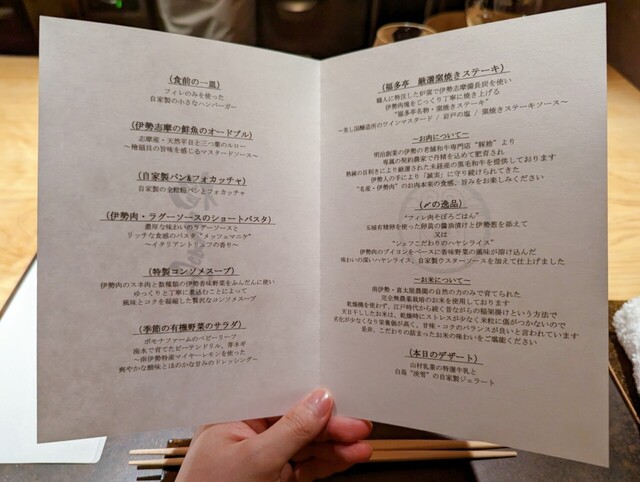 (食前の一皿)
フィレのみを使った
自家製の小さなハンバーガー
(伊勢志摩の鮮魚のオードブル)
志摩産・天然平目と三つ葉のルロー
～檜扇貝の旨味を感じるマスタードソース～
(自家製パン&フォカッチャ)
自家製の全粒粉パンとフォカッチャ
(伊勢肉・ラグーソースのショートパスタ)
濃厚な味わいのラグーソースと
リッチな食感のパスタ“メッツェマニケ”
～イタリアントリュフの香り～
(特製コンソメスープ)
伊勢肉のスネ肉と数種類の伊勢香味野菜をふんだんに使い
ゆっくりと丁寧に煮込むことによって
風味とコクを凝縮した贅沢なコンソメスープ
(季節の有機野菜のサラダ)
ポモナファームのベビーリーフ
海水で育てたピーテンドリル、芽ネギ
～南伊勢特産マイヤーレモンを使った
爽やかな酸味とほのかな甘みのドレッシング～
(福多亭 厳選窯焼きステーキ)
職人に特注した炉窯で伊勢志摩備長炭を使い
伊勢肉塊をじっくり丁寧に焼き上げる
“福多亭名物・窯焼きステーキ”
醸造所のワインマスタード / 岩戸の塩 / 窯焼きステーキソース～
～お肉について～
明治創業の伊勢の老舗和牛専門店“豚捨”より
専属の契約農家で丹精を込めて肥育され
熟練の目利きにより厳選された未経産の黒毛和牛を提供しております
伊勢人の手により「誠実」に守り続けられてきた
“名産・伊勢肉”のお肉本来の食感、旨みをお楽しみください
(〆の逸品)
“フィレ肉そぼろごはん”
五城有精卵を使った卵黄の醤油漬けと伊勢葱を添えて
又は
“シェフこだわりのハヤシライス”
伊勢肉のブイヨンをベースに香味野菜の風味が溶け込んだ
味わいの深いハヤシライス、自家製ウスターソースを加えて仕上げました
～お米について～
南伊勢・喜太屋農園の自然の力のみで育てられた
完全無農薬栽培のお米を使用しております
乾燥機を使わず、江戸時代から続く昔ながらの稲架掛けという方法で
天日干ししたお米は、乾燥時にストレスが少なく米粒に傷がつかないので
劣化が少なくなり栄養価が高く、甘味・コクのバランスが良いと言われています
是非、こだわりの詰まったお米の味わいをご堪能ください
(本日のデザート)
山村乳業の特選牛乳と
白苺“淡雪”の自家製ジェラート